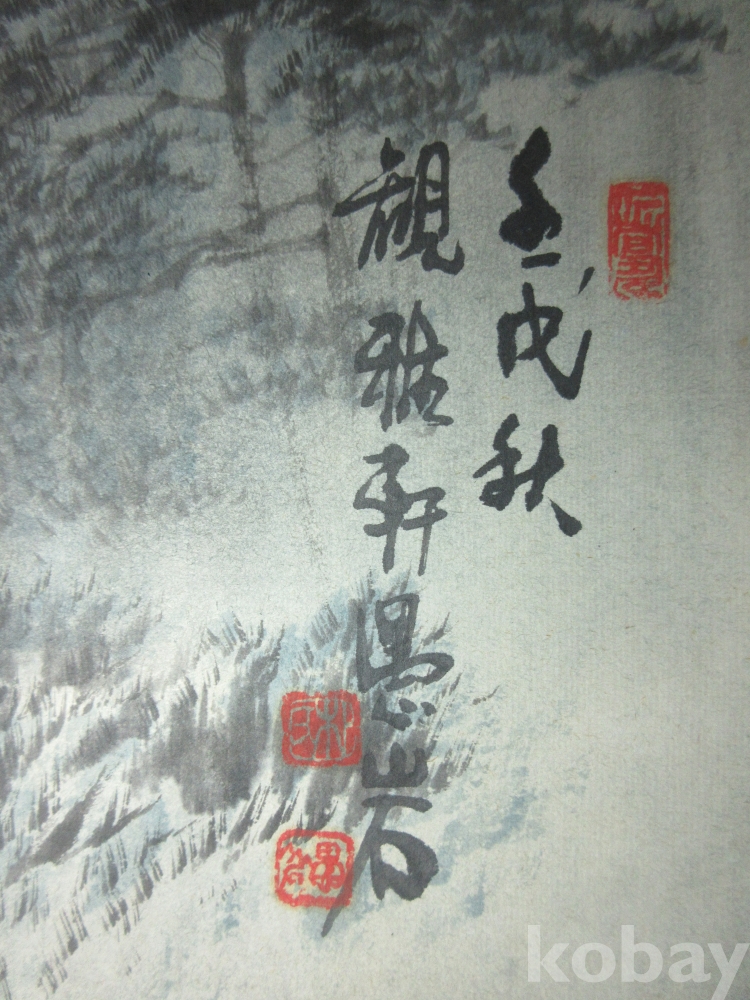 壬戌秋
觀雅軒愚岩
kobay